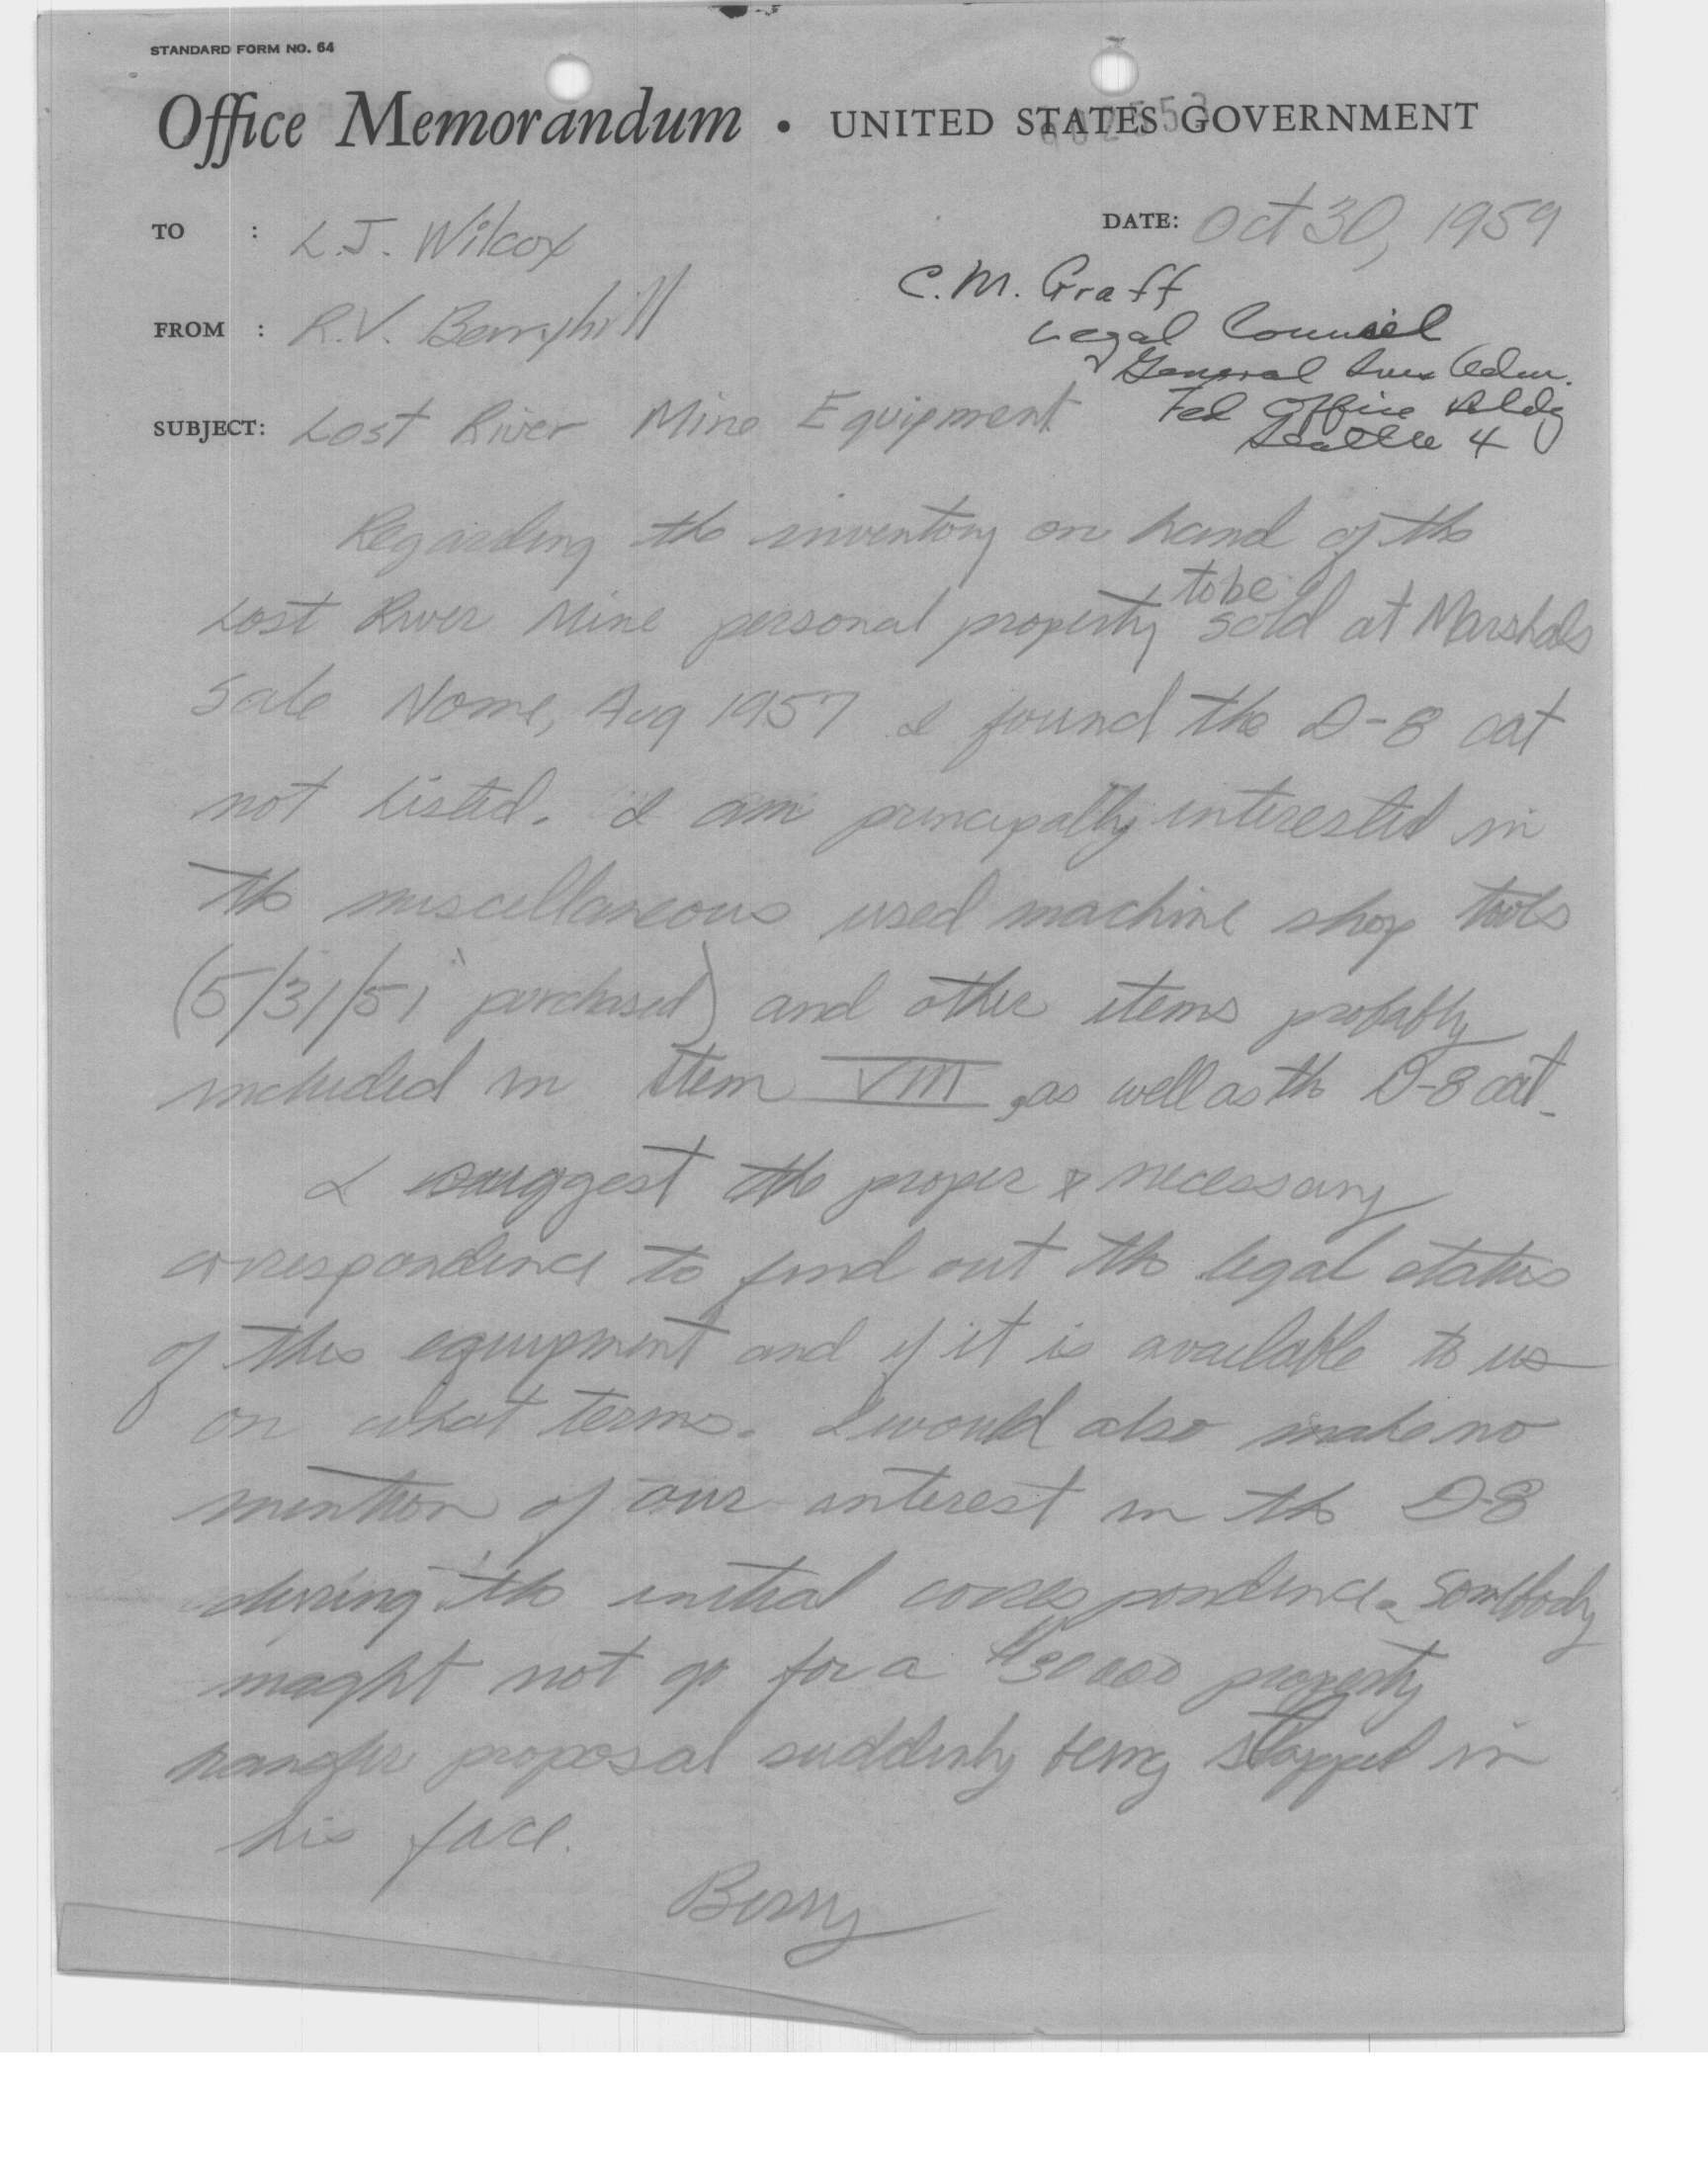 STANDARD FORM NO. 64
Office Memorandum • UNITED STATES GOVERNMENT
TO : L.J. Wilcox
DATE: Oct 30, 1959
C.M. Graff
Legal Counsel
FROM : R.V. Berryhill
General Serv Adm.
Fed Office Bldg
Seattle 4
SUBJECT: Lost River Mine Equipment
Regarding the inventory on hand of the
to be
Lost River Mine personal property sold at Marshals
Sale Nome, Aug 1957 I found the D-8 cat
not listed. I am principally interested in
the miscellaneous used machine shop tools
(5/31/51 purchased) and other items probably
included in Item VIII, as well as the D-8 cat.
I suggest the proper & necessary
correspondence to find out the legal status
of this equipment and if it is available to us
on what terms. I would also make no
mention of our interest in the D-8
during the initial correspondence. Somebody
maght not go for a $30000 property
transfer proposal suddenly being slapped in
his face.
Berry